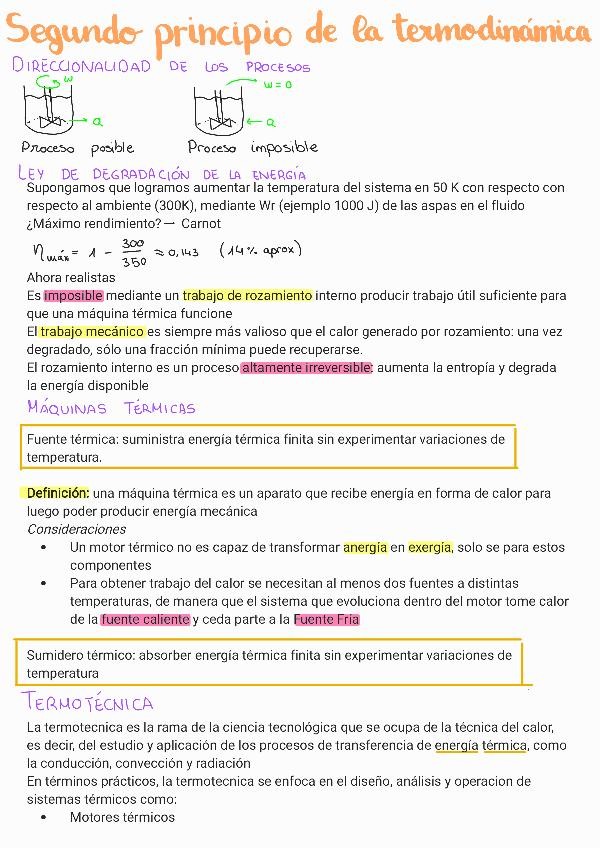 Segundo principio de la termodinámica
DIRECCIONALIDAD DE LOS PROCESOS
W
W = 0
Q
Q
Proceso posible
Proceso imposible
LEY DE DEGRADACIÓN DE LA ENERGÍA
Supongamos que logramos aumentar la temperatura del sistema en 50 K con respecto con
respecto al ambiente (300K), mediante Wr (ejemplo 1000 J) de las aspas en el fluido
¿Máximo rendimiento? — Carnot
η máx = 1 - 300/350 ≈ 0,143 (14% aprox)
Ahora realistas
Es imposible mediante un trabajo de rozamiento interno producir trabajo útil suficiente para
que una máquina térmica funcione
El trabajo mecánico es siempre más valioso que el calor generado por rozamiento: una vez
degradado, sólo una fracción mínima puede recuperarse.
El rozamiento interno es un proceso altamente irreversible: aumenta la entropía y degrada
la energía disponible
MÁQUINAS TÉRMICAS
Fuente térmica: suministra energía térmica finita sin experimentar variaciones de
temperatura.
Definición: una máquina térmica es un aparato que recibe energía en forma de calor para
luego poder producir energía mecánica
Consideraciones
• Un motor térmico no es capaz de transformar anergía en exergía, solo se para estos
componentes
• Para obtener trabajo del calor se necesitan al menos dos fuentes a distintas
temperaturas, de manera que el sistema que evoluciona dentro del motor tome calor
de la fuente caliente y ceda parte a la Fuente Fría
Sumidero térmico: absorber energía térmica finita sin experimentar variaciones de
temperatura
TERMOTÉCNICA
La termotecnica es la rama de la ciencia tecnológica que se ocupa de la técnica del calor,
es decir, del estudio y aplicación de los procesos de transferencia de energía térmica, como
la conducción, convección y radiación
En términos prácticos, la termotecnica se enfoca en el diseño, análisis y operacion de
sistemas térmicos como:
• Motores térmicos